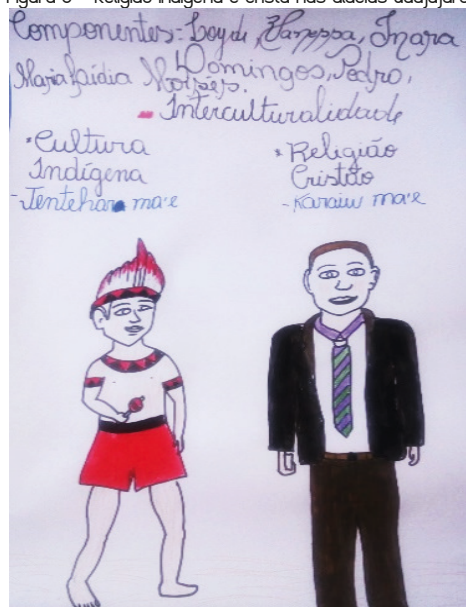 Figura 6 – Religião indígena e cristã nas aldeias Guajajara
Componentes= Loyde, Vanessa, Inara
Maria Domingos, Pedro,
Moisés.
- Interculturalidade
• Cultura
Indígena
- Tentehara ma'e
• Religião
Cristão
- Karaiw ma'e